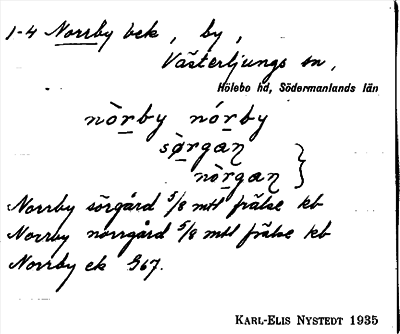 1-4 Norrby bek, by,
Västerljungs sn,
Hölebo hd, Södermanlands län
nòrby nórby
sørgaɳ
nòrgaɳ
Norrby sörgård 5/8 mtl frälse kb
Norrby norrgård 5/8 mtl frälse kb
Norrby ek G67.
KARL-ELIS NYSTEDT 1935